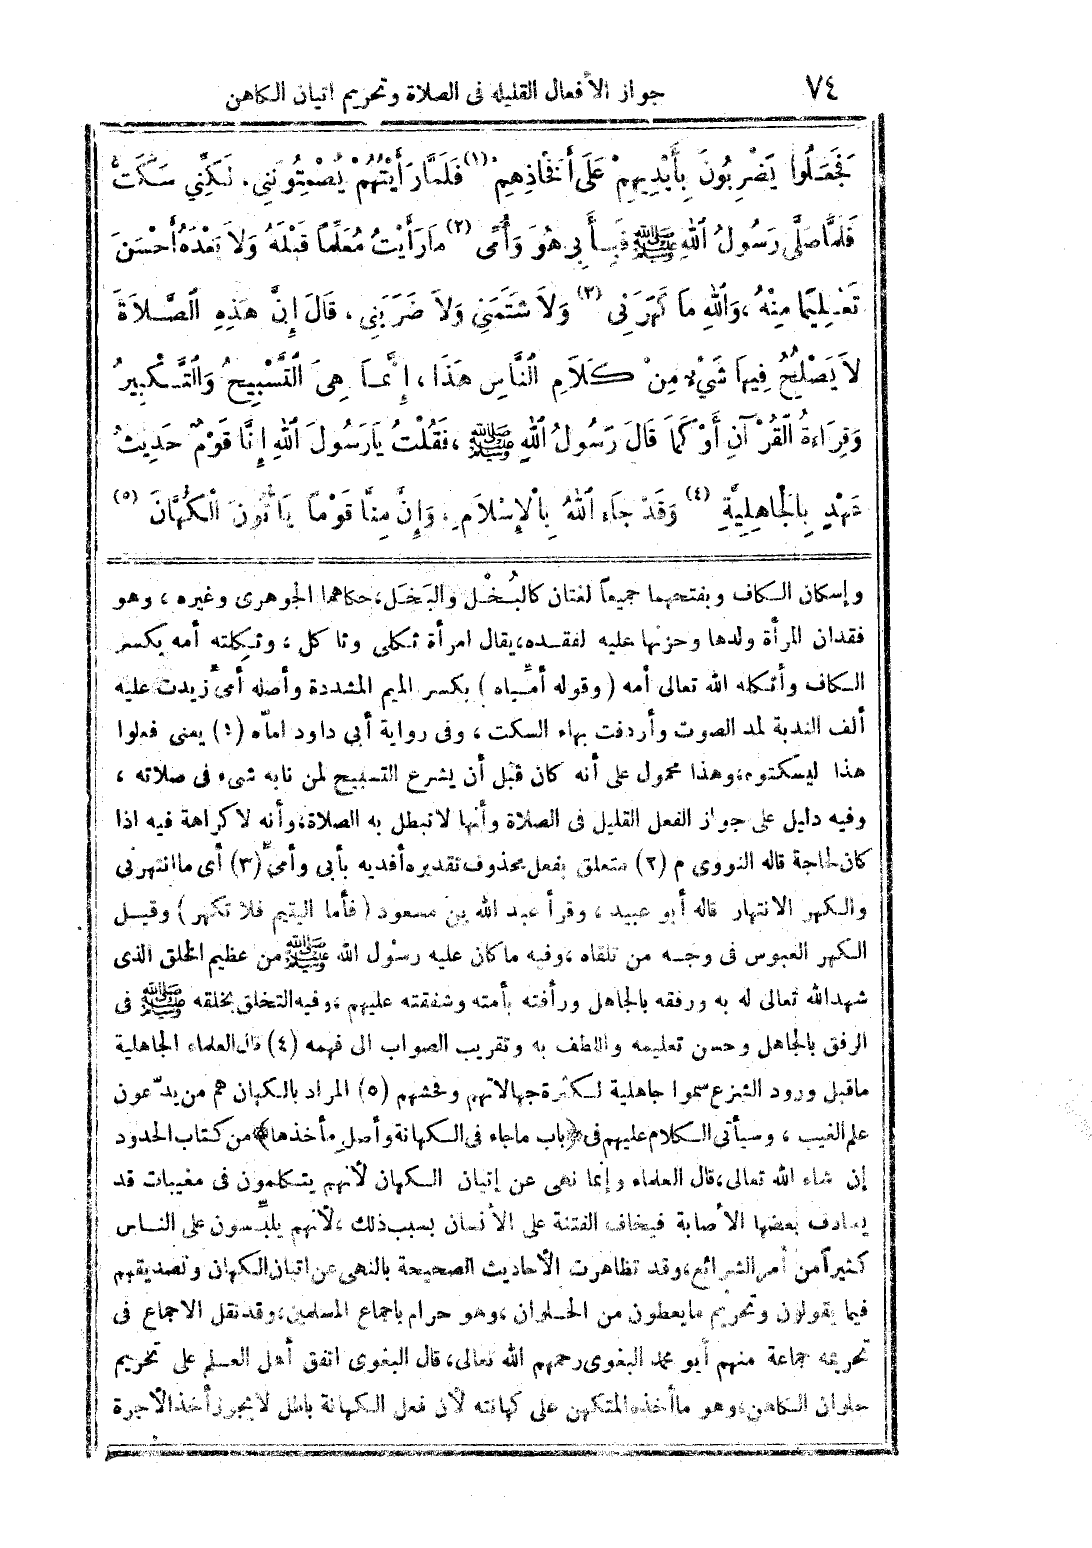 ٧٤ جواز الأفعال القليله فى الصلاة وتحريم اتيان الكاهن
فَجَعَلُوا يَضْرِبُونَ بِأَيْدِيهِمْ عَلَى أَفْخَاذِهِمْ (١) فَلَمَّا رَأَيْتُهُمْ يُصْمِتُونَنِى، لَكِنِّي سَكَتُّ
فَلَمَّا صَلَّى رَسُولُ اللهِ ﷺ فَبِأَبِى هُوَ وَأُمِّى (٢) مَا رَأَيْتُ مُعَلِّمًا قَبْلَهُ وَلاَ بَعْدَهُ أَحْسَنَ
تَعْلِيمًا مِنْهُ، وَاللهِ مَا كَهَرَنِى (٣) وَلاَ شَتَمَنِى وَلاَ ضَرَبَنِى، قَالَ إِنَّ هَذِهِ الصَّلاَةَ
لاَ يَصْلُحُ فِيهَا شَيْءٌ مِنْ كَلاَمِ النَّاسِ هَذَا، إِنَّمَا هِىَ التَّسْبِيحُ وَالتَّكْبِيرُ
وَقِرَاءَةُ الْقُرْآنِ أَوْ كَمَا قَالَ رَسُولُ اللهِ ﷺ، فَقُلْتُ يَارَسُولَ اللهِ إِنَّا قَوْمٌ حَدِيثُ
عَهْدٍ بِالْجَاهِلِيَّةِ (٤) وَقَدْ جَاءَ اللهُ بِالْإِسْلاَمِ، وَإِنَّ مِنَّا قَوْمًا يَأْتُونَ الْكُهَّانَ (٥)
وإسكان الكاف وبفتحهما جميعاً لغتان كالبُخْل والبَخَل، حكاهما الجوهرى وغيره ، وهو
فقدان المرأة ولدها وحزنها عليه لفقده، يقال امرأة ثكلى وثا كل ، وثكلته أمه بكسر
الكاف وأثكله الله تعالى أمه ( وقوله أمِّياه ) بكسر الميم المشددة وأصله أمى زيدت عليه
ألف الندبة لمد الصوت وأردفت بهاء السكت ، وفى رواية أبي داود امّاه (١) يعنى فعلوا
هذا ليسكتوه، وهذا محمول على أنه كان قبل أن يشرع التسبيح لمن نابه شىء فى صلاته ،
وفيه دليل على جواز الفعل القليل فى الصلاة وأنها لاتبطل به الصلاة، وأنه لا كراهة فيه اذا
كان لحاجة قاله النووى م (٢) متعلق بفعل محذوف تقديره أفديه بأبى وأمىّ (٣) أى ماانتهرنى
والكهر الانتهار قاله أبو عبيد ، وقرأ عبد الله بن مسعود ( فأما اليتيم فلا تكهر ) وقيل
الكهر العبوس فى وجه من تلقاه ، وفيه ما كان عليه رسول الله ﷺ من عظيم الخلق الذى
شهد الله تعالى له به ورفقه بالجاهل ورأفته بأمته وشفقته عليهم ، وفيه التخلق بخلقه ﷺ فى
الرفق بالجاهل وحسن تعليمه واللطف به وتقريب الصواب الى فهمه (٤) قال العلماء الجاهلية
ماقبل ورود الشرع سموا جاهلية لكثرة جهالاتهم وفحشهم (٥) المراد بالكهان هم من يدّعون
علم الغيب ، وسيأتى الكلام عليهم فى ﴿باب ماجاء فى الكهانة وأصل مأخذها﴾ من كتاب الحدود
إن شاء الله تعالى، قال العلماء وإنما نهى عن إتيان الكهان لأنهم يتكلمون فى مغيبات قد
يصادف بعضها الأصابة فيخاف الفتنة على الأنسان بسبب ذلك ، لأنهم يلبّسون على الناس
كثيراً من أمر الشرائع، وقد تظاهرت الأحاديث الصحيحة بالنهى عن اتيان الكهان وتصديقهم
فيما يقولون وتحريم مايعطون من الحلوان ، وهو حرام باجماع المسلمين، وقد نقل الاجماع فى
تحريمه جماعة منهم أبو محمد البغوى رحمهم الله تعالى، قال البغوى اتفق أهل العلم على تحريم
حلوان الكاهن، وهو ماأخذه المتكهن على كهانته لأن فعل الكهانة باطل لايجوز أخذ الأجرة